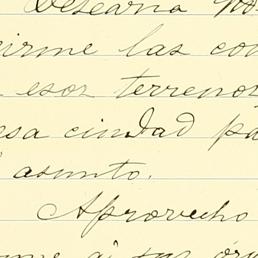 Desearia
irme las con
esos terrenos
esa ciudad pa
asunto.
Aprovecho